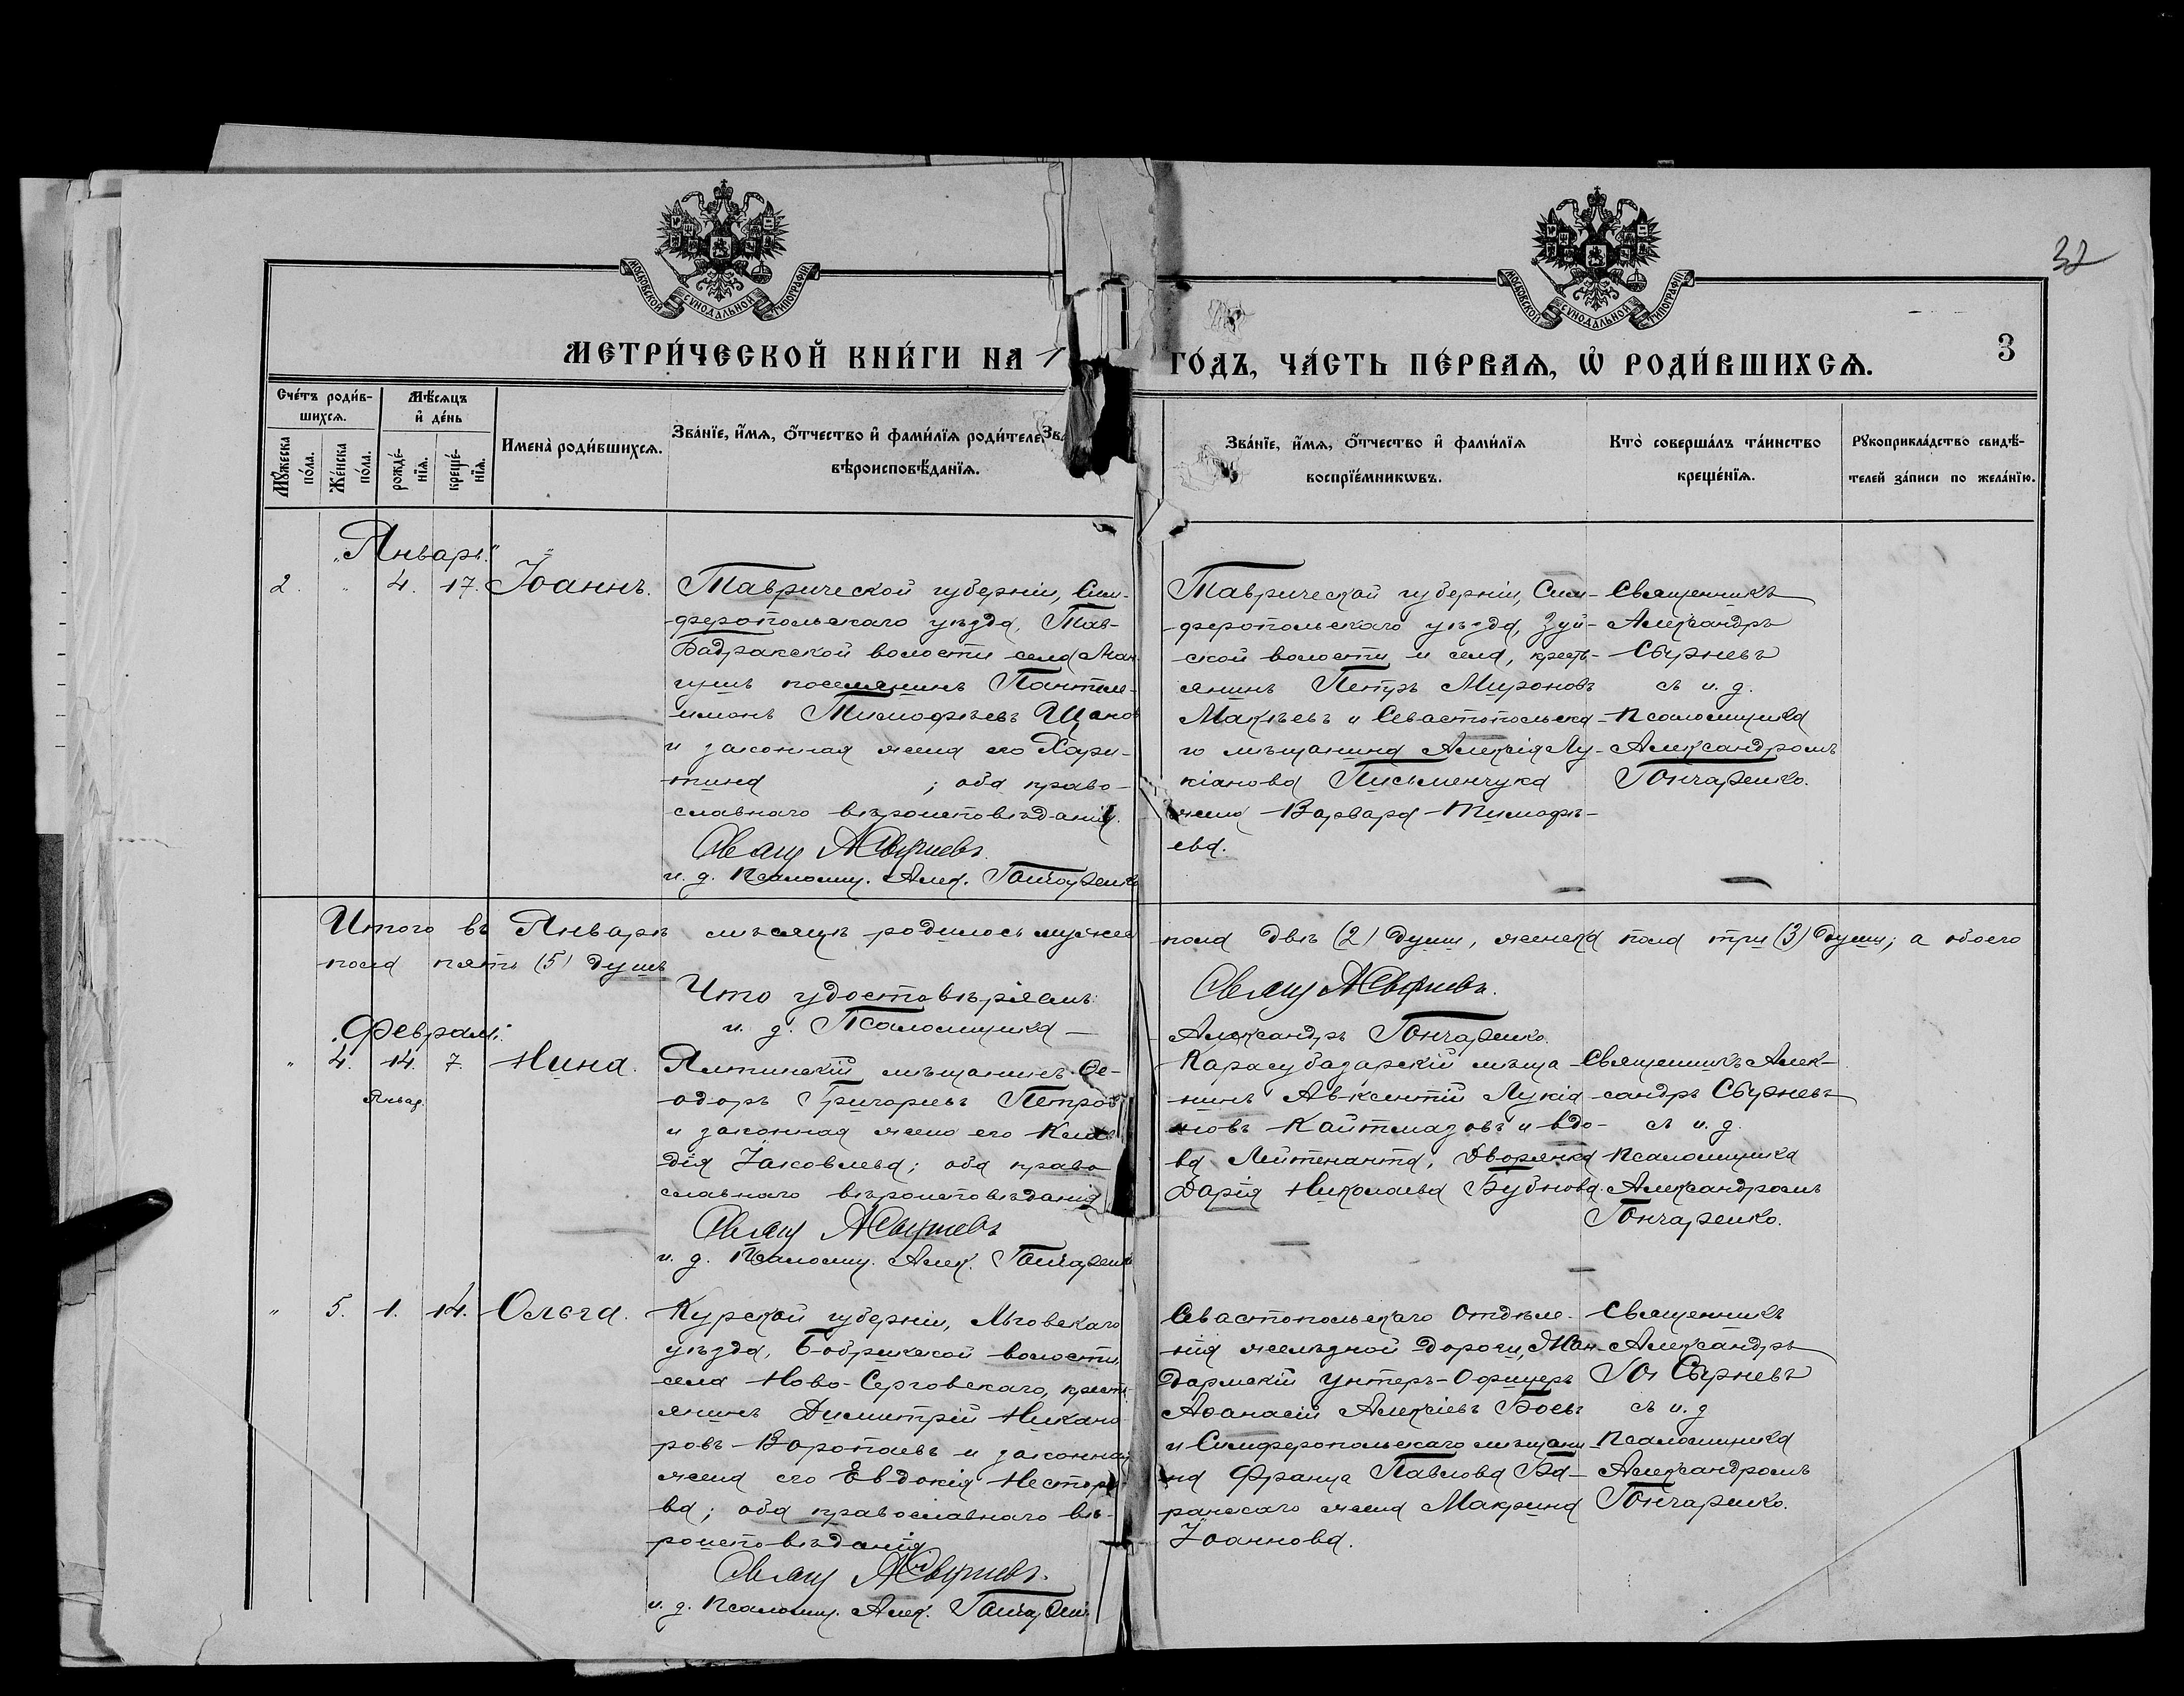 МОСКОВСКОЙ СѴНОДАЛЬНОЙ ТИПОГРАФІИ
МОСКОВСКОЙ СѴНОДАЛЬНОЙ ТИПОГРАФІИ
32
МЕТРИ́ЧЕСКОЙ КНИ́ГИ НА 1
ГО́ДЪ, ЧА́СТЬ ПЕ́РВАѦ, Ѡ҆ РОДИ́ВШИХСѦ.
3
Сче́тъ роди́в-
шихсѧ.
Мѣ́сѧцъ
и҆ де́нь
Мꙋ́жеска
по́ла.
Же́нска
по́ла.
рожде́-
нїѧ.
креще́-
нїѧ.
Имена̀ роди́вшихсѧ.
Зва́нїе, и҆́мѧ, ѻ҆́тчество и҆ фами́лїѧ роди́теле
вѣроисповѣ́данїѧ.
Зва́нїе, и҆́мѧ, ѻ҆́тчество и҆ фами́лїѧ
воспрїе́мникѡвъ.
Кто̀ соверша́лъ та́инство
креще́нїѧ.
Рꙋкоприкла́дство свидѣ́-
телей за́писи по жела́нїю.
„Январь."
2. „ 4. 17. Іоаннъ.
Таврической губерніи, Сим-
феропольскаго уѣзда, Тав-
Бадракской волости села Ман
гушъ поселянинъ Пантеле-
имонъ Тимофѣевъ
и законная жена его Хари-
тина ; оба право-
славнаго вѣроисповѣданія.
и. д. Псаломщ. Алек. Гончаренко
Таврической губерніи, Сим-
феропольскаго уѣзда, Зуй-
ской волости и села, кресть-
янинъ Петръ Мироновъ
Макѣевъ и Севастопольска-
го мѣщанина Алексія Лу-
кіанова Письменчука
жена Варвара Тимофѣ-
ева.
Священникъ
Александръ
Сбурневъ
съ и. д.
Псаломщика
Александромъ
Гончаренко.
Итого въ Январѣ мѣсяцѣ родилось мужеска
пола двѣ (2) души, женска пола три (3) души; а обоего
пола пять (5) душъ
Что удостовѣряемъ:
и. д. Псаломщика —
Александръ Гончаренко.
Февраль.
„ 4. 14. 7. Нина.
Январ.
Ялтинскій мѣщанинъ Ѳе-
одоръ Григорьевъ Петров
и законная жена его Клав
дія Іаковлева; оба право
славнаго вѣроисповѣданія
и. д. Псаломщ. Алек. Гончаренко
Карасубазарскій мѣща-
нинъ Авксентій Лукіа
новъ Кайтмазовъ и вдо-
ва Лейтенанта, Дворянка
Дарія Николаева Бубнова
Священникъ Алек-
сандръ Сбурневъ
съ и. д.
Псаломщика
Александромъ
Гончаренко.
„ 5. 1. 14. Ольга.
Курской губерніи, Льговскаго
уѣзда, Бобрикской волости
села Ново-Серговскаго, кресть
янинъ Димитрій Никано
ровъ Воропаевъ и законная
жена его Евдокія Нестеро
ва; оба православнаго вѣ-
роисповѣданія
и. д. Псаломщ. Алек.
Севастопольскаго Отдѣле-
нія желѣзной дороги, Жан-
дармскій Унтеръ-Офицеръ
Аѳанасій Алексіевъ Боевъ
и Симферопольскаго мѣщани
на Франца Павлова Ба-
ранскаго жена Макрина
Іоаннова.
Священникъ
Александръ
Сбурневъ
съ и. д
Псаломщика
Александромъ
Гончаренко.